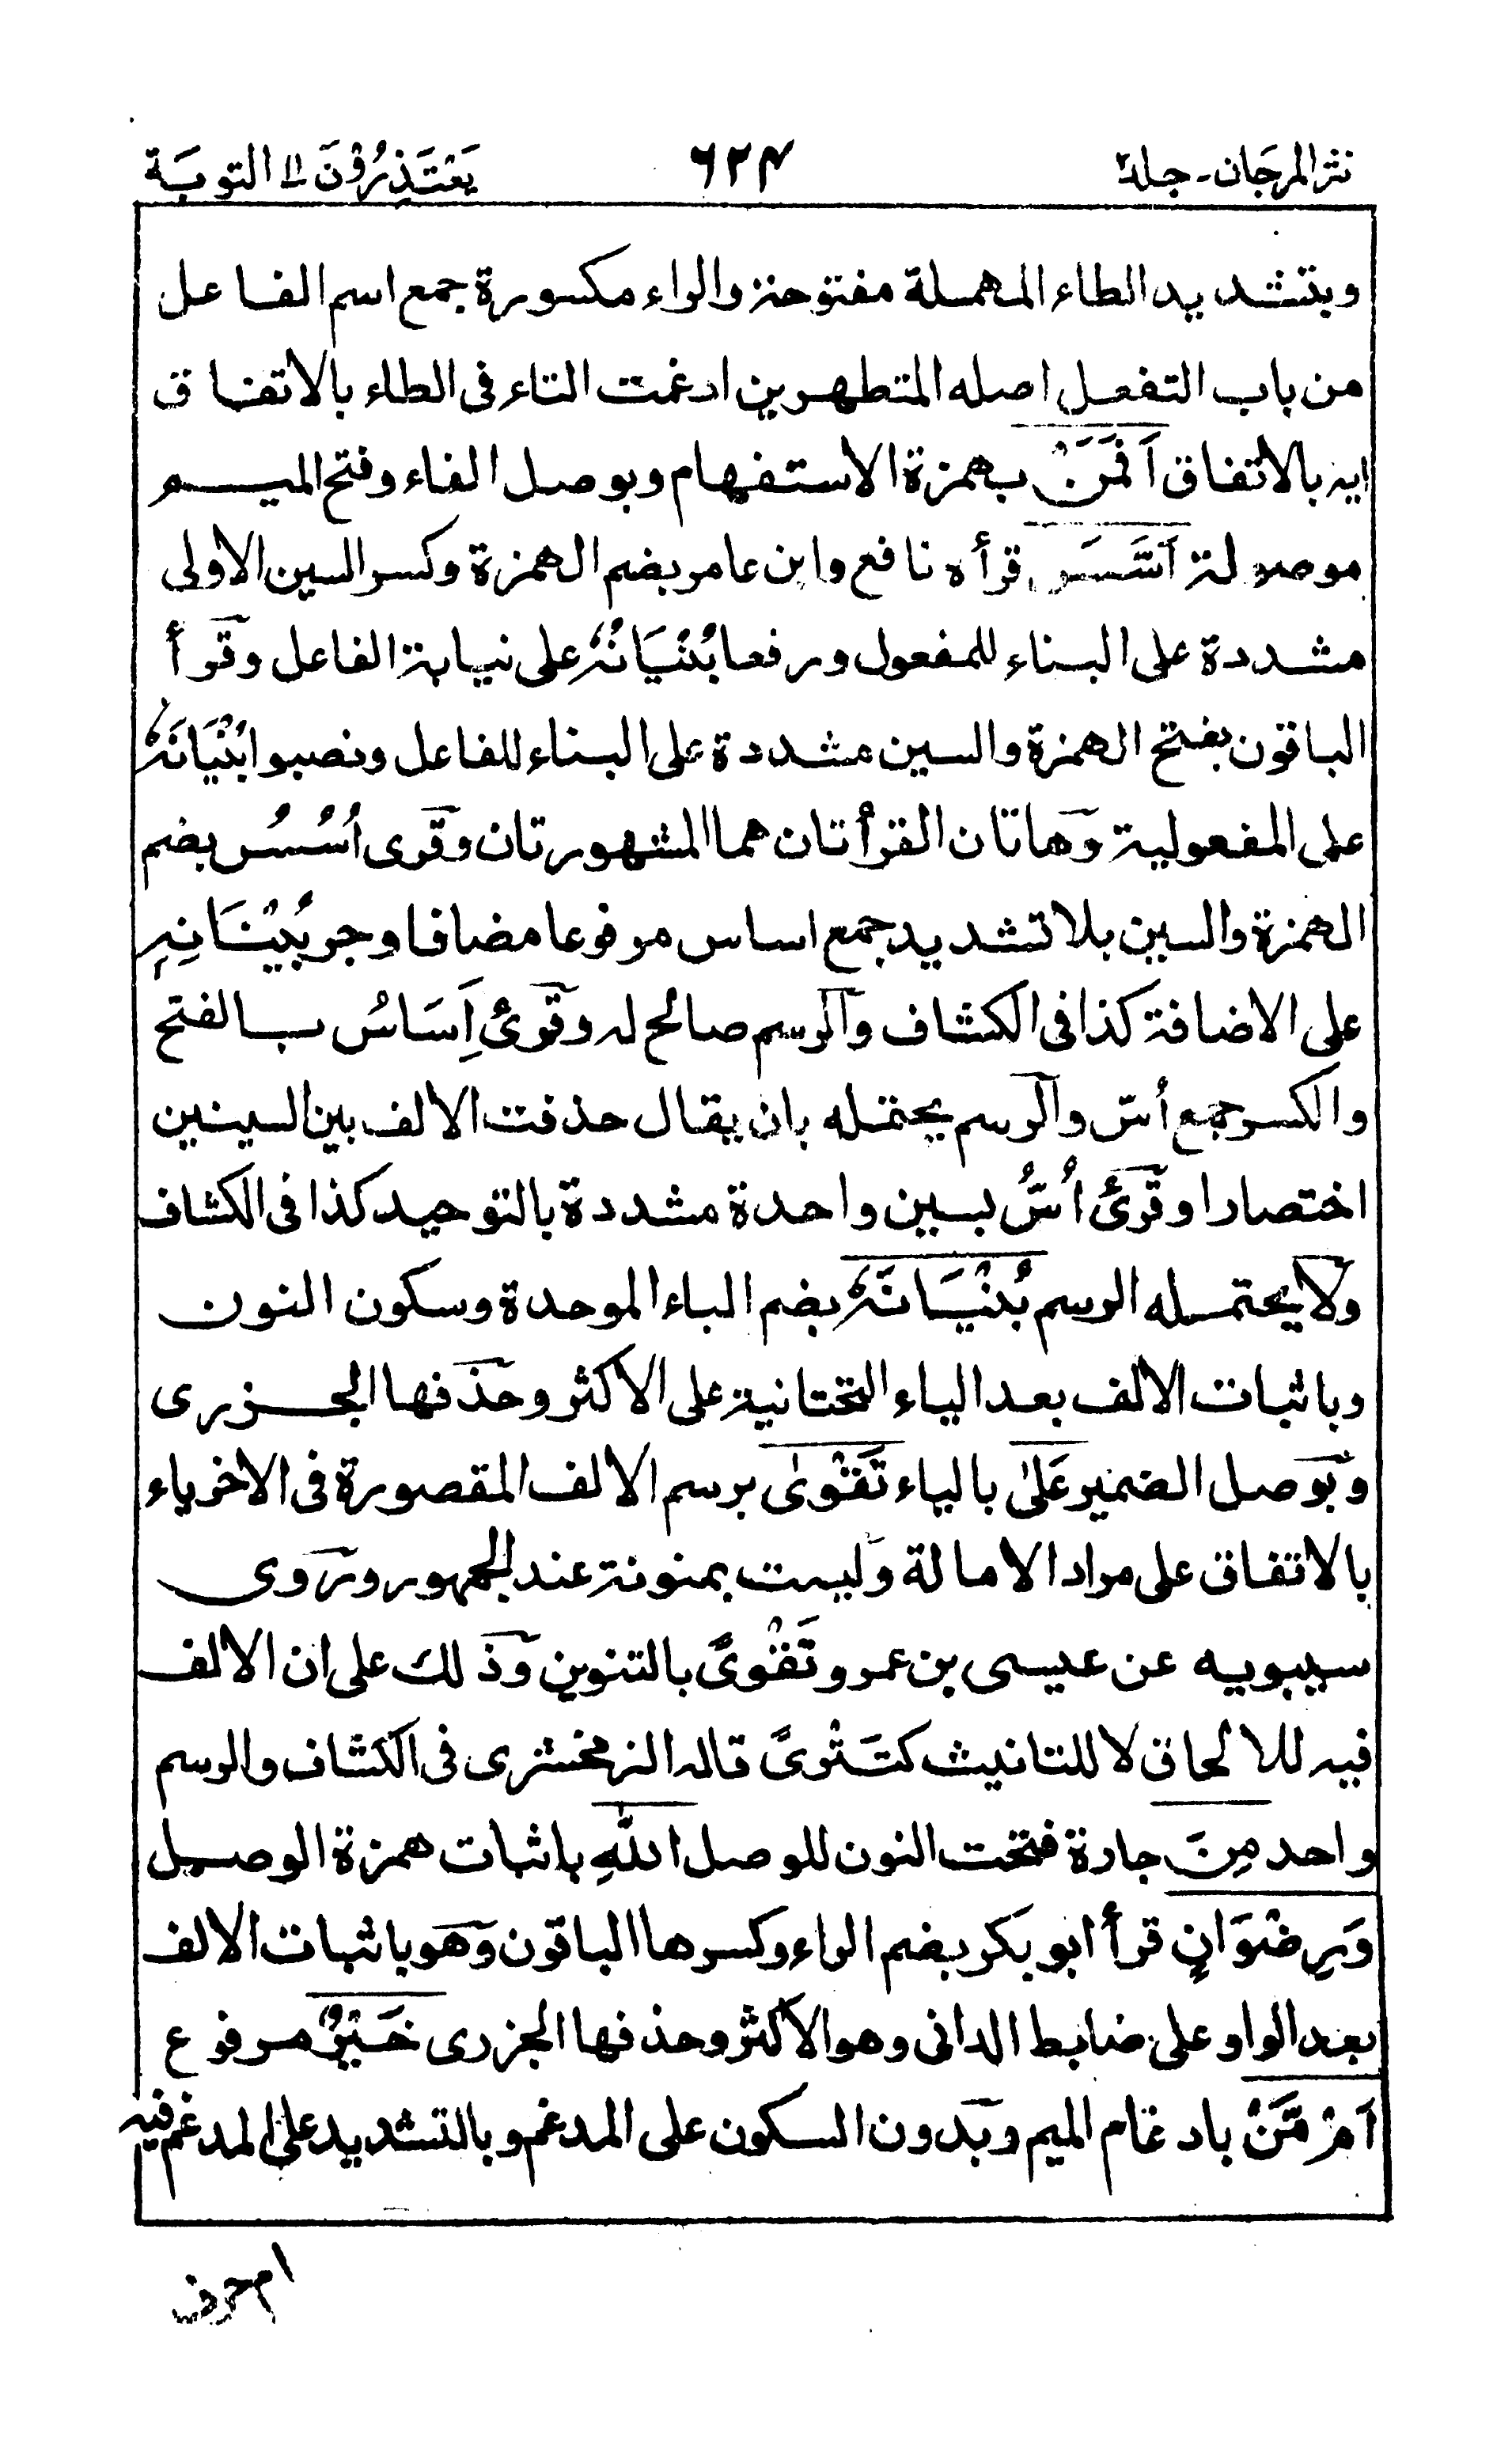 نثر المرجان - جلد٢ ٦٢٤ يَعْتَذِرُوْنَ ١١ التوبَة
وبتشديد الطاء المهملة مفتوحة والراء مكسورة جمع اسم الفاعل
من باب التفعل اصله المتطهرين ادغمت التاء فى الطاء بالاتفاق
ايه بالاتفاق اَفَمَنْ بهمزة الاستفهام وبوصل الفاء وفتح الميم
موصولة اَسَّسَ قرأه نافع وابن عامر بضم الهمزة وكسر السين الاولى
مشددة على البناء للمفعول ورفعا بُنْيَانُهٗ على نيابة الفاعل وقرأ
الباقون بفتح الهمزة والسين مشددة على البناء للفاعل ونصبوا بُنْيَانَهٗ
على المفعولية وهاتان القرأتان هما المشهورتان وقرى اُسُسُ بضم
الهمزة والسين بلا تشديد جمع اساس مرفوعا مضافا وجر بُنْيَانِهٖ
على الاضافة كذا فى الكشاف والرسم صالح له وقرئ اِسَاسُ بالفتح
والكسر جمع أسّ والرسم يحتمله بان يقال حذفت الالف بين السينين
اختصارا وقرئ اُسُّ بسين واحدة مشددة بالتوحيد كذا فى الكشاف
ولا يحتمله الرسم بُنْيَانَهٗ بضم الباء الموحدة وسكون النون
وباثبات الالف بعد الياء التحتانية على الاكثر وحذفها الجزرى
وبوصل الضمير عَلٰى بالياء تَقْوٰى برسم الالف المقصورة فى الاخر ياء
بالاتفاق على مراد الامالة وليست بمنونة عند الجمهور وروى
سيبويه عن عيسى بن عمرو تَقْوىً بالتنوين وذلك على ان الالف
فيه للالحاق لا للتانيث كتَتْرىً قاله الزمخشرى فى الكشاف والرسم
واحد مِنَ جارة فتحت النون للوصل اللّٰهِ باثبات همزة الوصل
وَرِضْوَانٍ قرأ ابو بكر بضم الراء وكسرها الباقون وهو باثبات الالف
بعد الواو على ضابط الدانى وهو الاكثر وحذفها الجزرى خَيْرٌ مرفوع
اَمْ مَّنْ بادغام الميم وبدون السكون على المدغم وبالتشديد على المدغم فيه
ام حرف